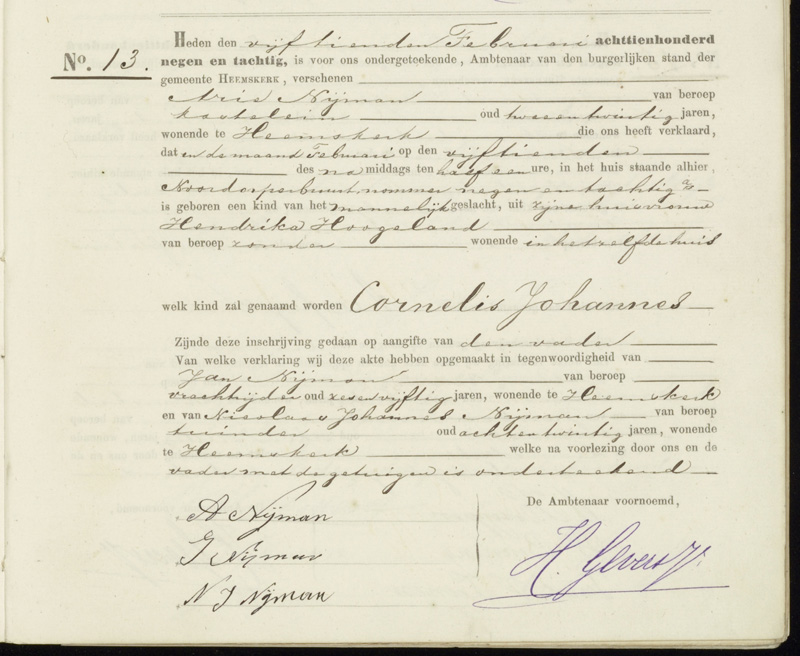 Heden den vijftienden Februari achttienhonderd
No. 13. negen en tachtig, is voor ons ondergeteekende, Ambtenaar van den burgerlijken stand der
gemeente HEEMSKERK, verschenen
Aris Nijman van beroep
kastelein oud twee en twintig jaren,
wonende te Heemskerk die ons heeft verklaard,
dat in de maand Februari op den vijftienden
des na middags ten half een ure, in het huis staande alhier,
Noorderperbuurt nommer negen en tachtig a/
is geboren een kind van het mannelijk geslacht, uit zijne huisvrouw
Hendrika Hoogeland
van beroep zonder wonende in hetzelfde huis
welk kind zal genaamd worden Cornelis Johannes
Zijnde deze inschrijving gedaan op aangifte van den vader
Van welke verklaring wij deze akte hebben opgemaakt in tegenwoordigheid van
Jan Nijman van beroep
vrachtrijder oud zes en vijftig jaren, wonende te Heemskerk
en van Nicolaas Johannes Nijman van beroep
tuinder oud acht en twintig jaren, wonende
te Heemskerk welke na voorlezing door ons en de
vader met de getuigen is onderteekend
De Ambtenaar voornoemd,
A Nijman
J Nijman
N J Nijman
H. Gevers